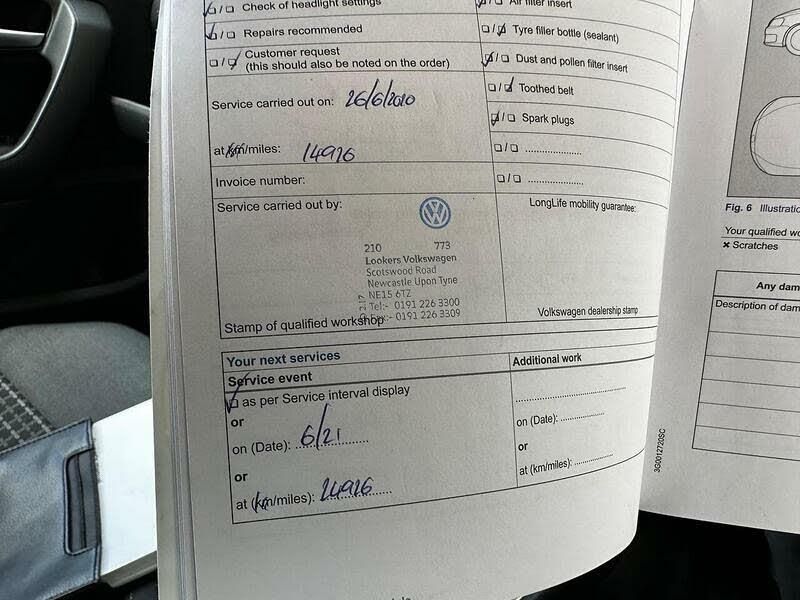 ☑/☐ Check of headlight settings
☑/☐ Repairs recommended
☐/☑ Customer request
(this should also be noted on the order)
Service carried out on: 26/6/2020
at km/miles: 14926
Invoice number:
Service carried out by:
210 773
Lookers Volkswagen
Scotswood Road
Newcastle Upon Tyne
NE15 6TZ
Tel:- 0191 226 3300
Fax:- 0191 226 3309
Stamp of qualified workshop
Air filter insert
☐/☑ Tyre filler bottle (sealant)
☑/☐ Dust and pollen filter insert
☐/☑ Toothed belt
☑/☐ Spark plugs
☐/☐ ....................
☐/☐ ....................
LongLife mobility guarantee:
Volkswagen dealership stamp
Your next services
Service event
☑ as per Service interval display
or
on (Date): 6/21
or
at (km/miles): 24926
Additional work
..............................
on (Date): ..............
or
at (km/miles): ............
3G0012720SC
Fig. 6 Illustratio
Your qualified wo
✖ Scratches
Any dam
Description of dam